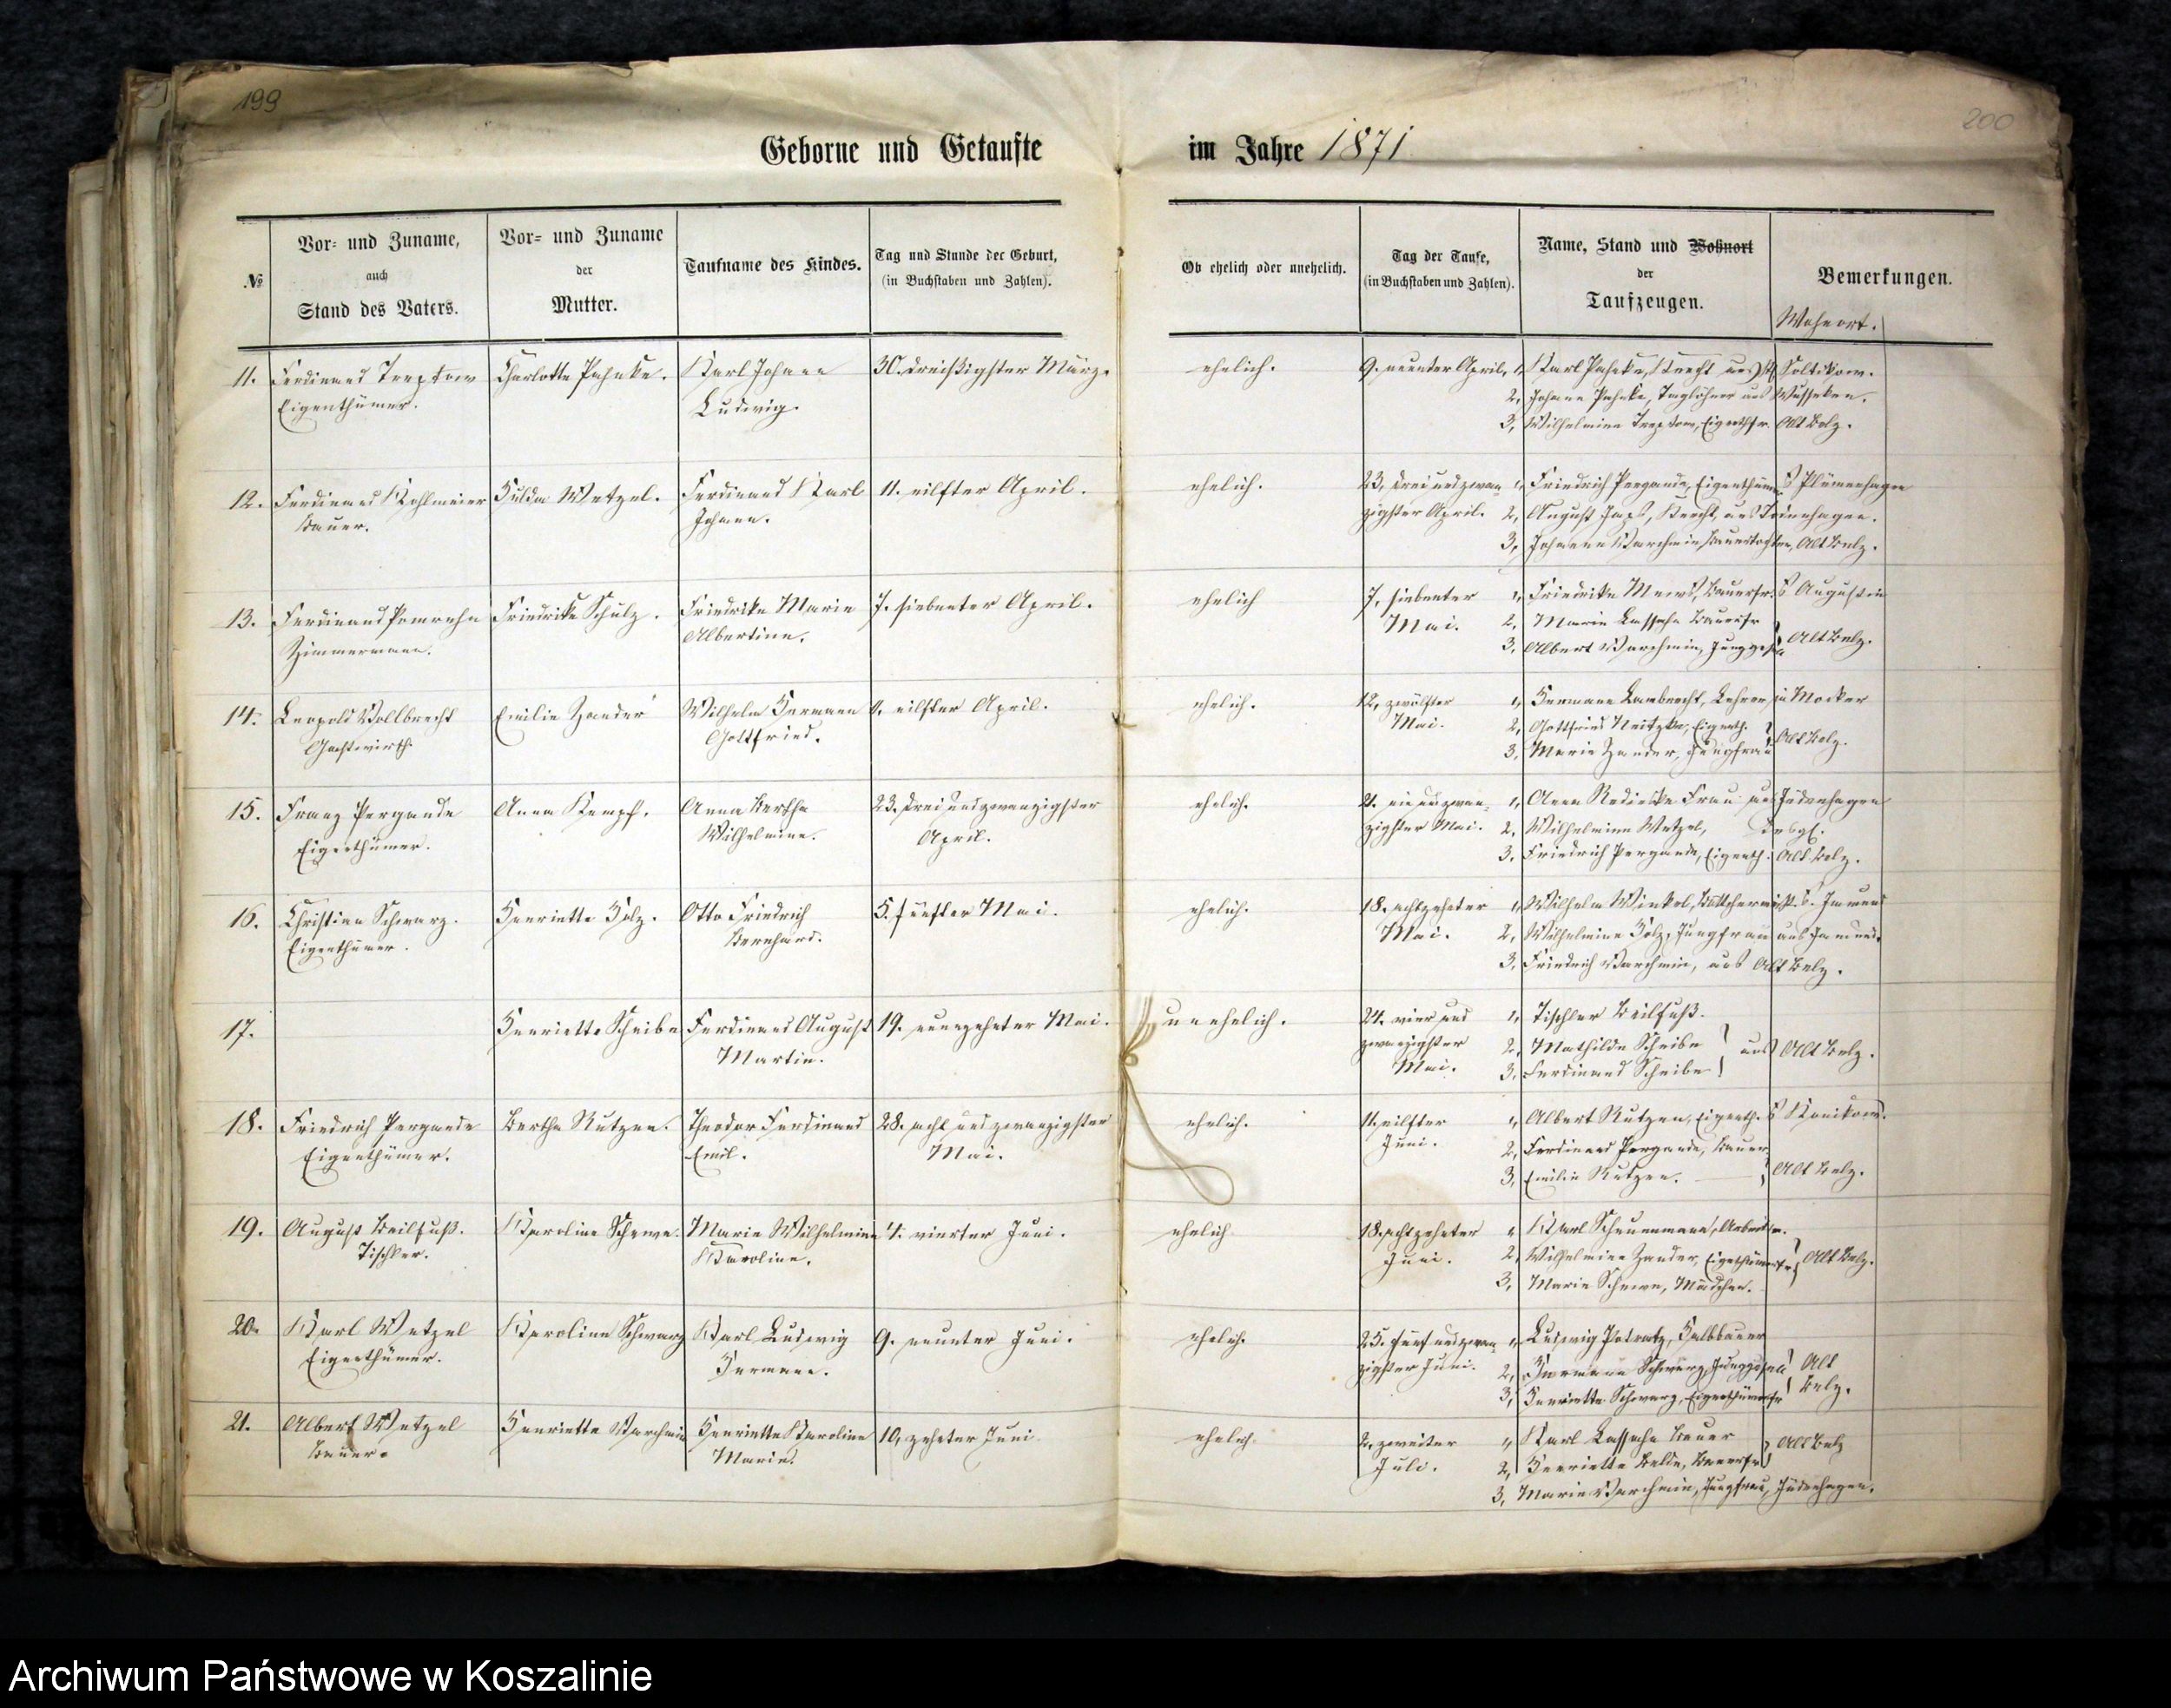 199
200
Geborne und Getaufte im Jahre 1871
№
Vor- und Zuname,
auch
Stand des Vaters.
Vor- und Zuname
der
Mutter.
Taufname des Kindes.
Tag und Stunde der Geburt,
(in Buchstaben und Zahlen).
Ob ehelich oder unehelich.
Tag der Taufe,
(in Buchstaben und Zahlen).
Name, Stand und Wohnort
der
Taufzeugen.
Bemerkungen.
Wohnort.
11. Ferdinand Treptow Charlotte Pahnke. Karl Johann 30. dreißigster März. ehelich. 9. neunter April. 1, Karl Pahnke, Knecht aus Soltikow.
Eigenthümer. Ludwig. 2, Johann Pahnke, Taglöhner aus Wusseken.
3, Wilhelmine Treptow, Eigenthfr. Alt Belz.
12. Ferdinand Kohlmeier Hulda Wetzel. Ferdinand Karl 11. eilfter April. ehelich. 23, drei und zwan- 1, Friedrich Pergande, Eigenthümer Plümenhagen
Bauer. Johann. zigster April. 2, August Knecht, aus
3, Johanna Varchmin, Bauertochter, Alt Belz.
13. Ferdinand Pomrehn Friedrike Schulz. Friedrike Marie 7. siebenter April. ehelich 7, siebenter 1, Friedrike Bauerfr. Augustin
Zimmermann. Albertine. Mai. 2, Marie Lassahn Bauerfr
3, Albert Varchmin, Junggesell Alt Belz.
14. Leopold Vollbrecht Emilie Zander Wilhelm Hermann 11. eilfter April. ehelich. 12, zwölfter 1, Hermann Lambrecht, Lehrer in Mocker
Gastwirth. Gottfried. Mai. 2, Gottfried Neitzke, Eigenth.
3, Marie Zander, Jungfrau Alt Belz.
15. Franz Pergande Anna Kempf. Anna Bertha 23. drei und zwanzigster ehelich. 21. ein und zwan- 1, Anna Radieske Frau aus Jüdenhagen
Eigenthümer. Wilhelmine. April. zigster Mai. 2, Wilhelmine Wetzel, desgl.
3, Friedrich Pergande, Eigenth. Alt Belz.
16. Christian Schwarz. Henriette Holz. Otto Friedrich 5. fünfter Mai. ehelich. 18. achtzehnter 1, Wilhelm Winkel, Jamund
Eigenthümer. Bernhard. Mai. 2, Wilhelmine Holz, Jungfrau aus Jamund.
3, Friedrich Varchmin, aus Alt Belz.
17. Henriette Scheibe Ferdinand August 19. neunzehnter Mai. unehelich. 24. vier und 1, Tischler Beilfuß.
Martin. zwanzigster 2, Mathilde Scheibe aus Alt Belz.
Mai. 3, Ferdinand Scheibe
18. Friedrich Pergande Bertha Rutzen. Theodor Ferdinand 28. acht und zwanzigster ehelich. 11. eilfter 1, Albert Rutzen, Eigenth. Konikow.
Eigenthümer. Emil. Mai. Juni. 2, Ferdinand Pergande, Bauer
3, Emilie Rutzen. Alt Belz.
19. August Beilfuß. Karoline Schewe. Marie Wilhelmine 4. vierter Juni. ehelich 18. achtzehnter 1, Karl Scheunemann,
Tischler. Karoline. Juni. 2, Wilhelmine Zander, Eigenthümerfr. Alt Belz.
3, Marie Schewe, Mädchen.
20. Karl Wetzel Karoline Schwarz Karl Ludwig 9. neunter Juni. ehelich. 25. fünf und zwan- 1, Ludwig Potratz, Halbbauer
Eigenthümer. Hermann. zigster Juni. 2, Hermann Schwarz, Junggesell Alt
3, Henriette Schwarz, Eigenthümerfr Belz.
21. Albert Wetzel Henriette Varchmin Henriette Karoline 10, zehnter Juni ehelich. 2, zweiter 1, Karl Lassahn Bauer Alt Belz
Bauer. Marie. Juli. 2, Henriette Bauerfr
3, Marie Varchmin, Jungfrau, Jüdenhagen.
Archiwum Państwowe w Koszalinie